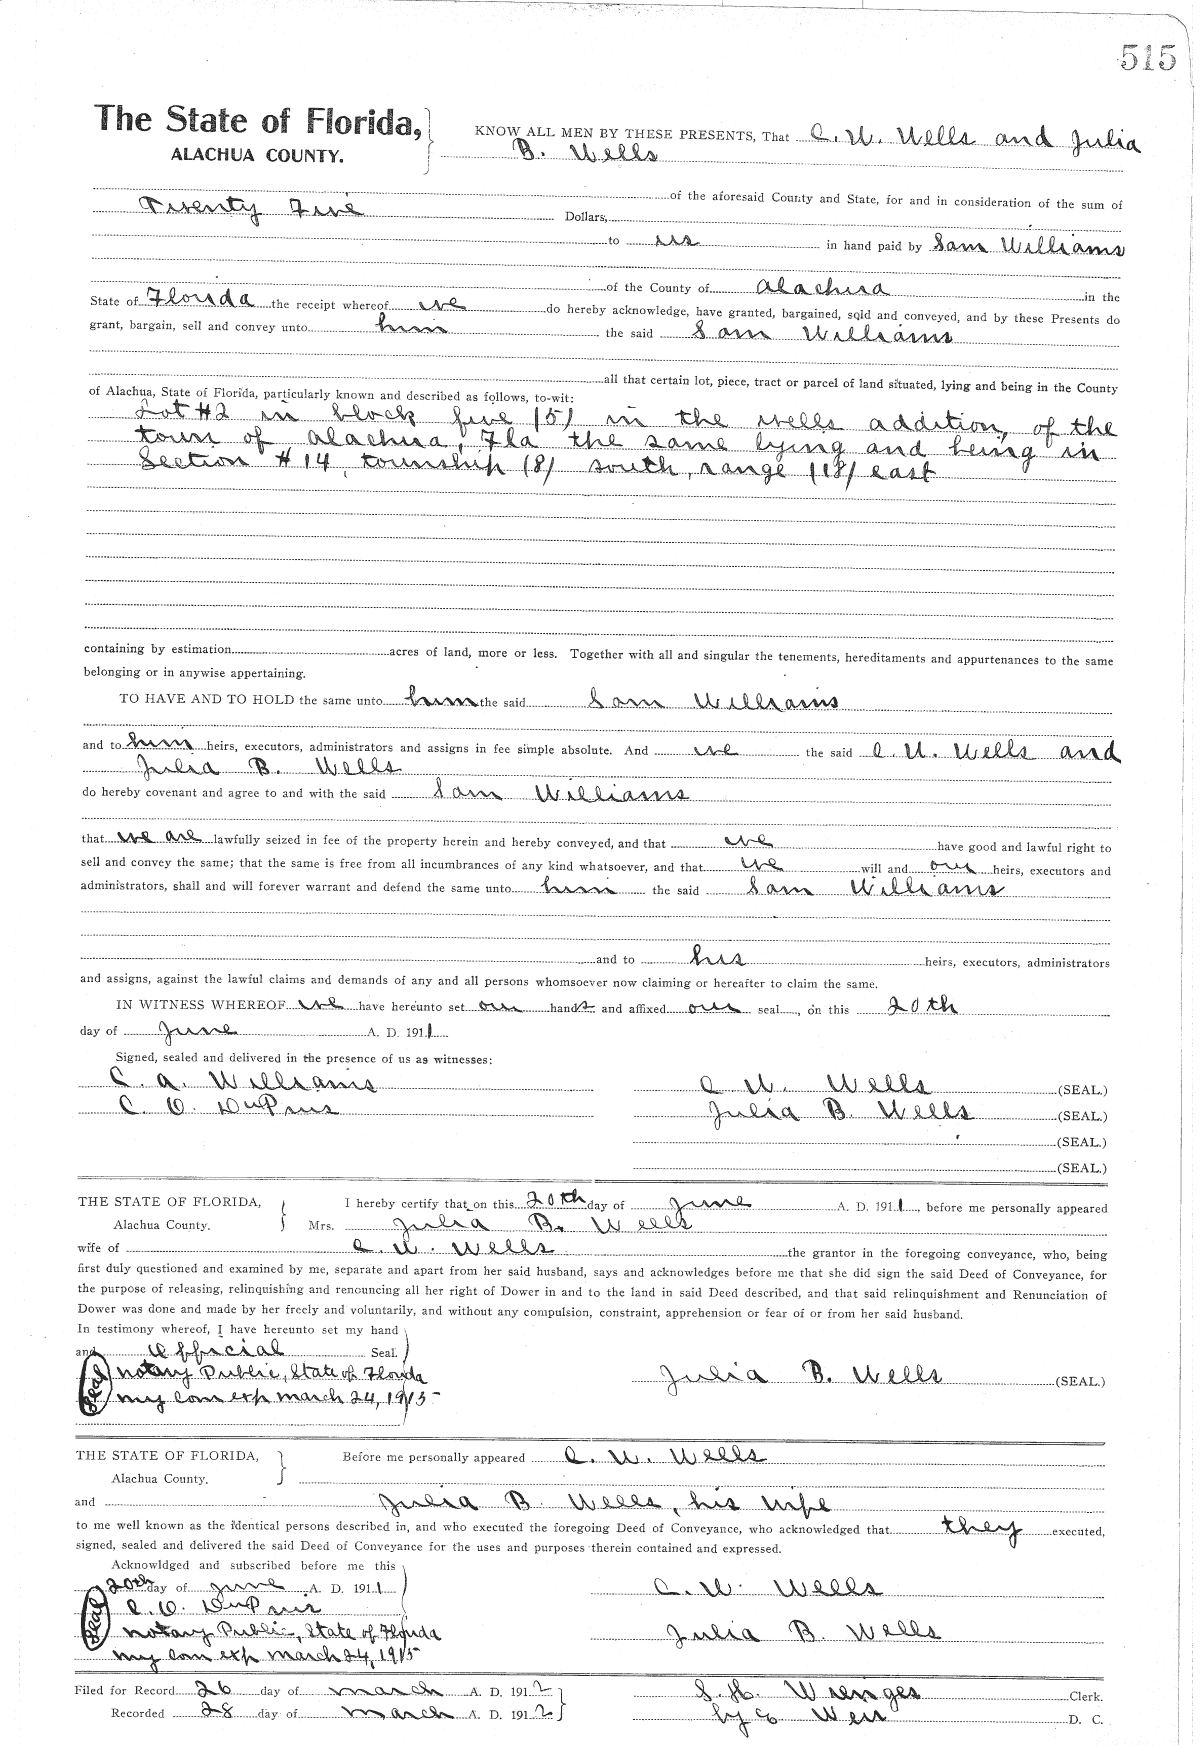 515
The State of Florida, KNOW ALL MEN BY THESE PRESENTS, That C. W. Wells and Julia
ALACHUA COUNTY. B. Wells
of the aforesaid County and State, for and in consideration of the sum of
Twenty Five Dollars,
to us in hand paid by Sam Williams
of the County of Alachua in the
State of Florida the receipt whereof we do hereby acknowledge, have granted, bargained, sold and conveyed, and by these Presents do
grant, bargain, sell and convey unto him the said Sam Williams
all that certain lot, piece, tract or parcel of land situated, lying and being in the County
of Alachua, State of Florida, particularly known and described as follows, to-wit:
Lot #2 in block five (5) in the wells addition, of the
town of alachua, Fla the same lying and being in
Section #14, township (8) south, range (18) east
containing by estimation acres of land, more or less. Together with all and singular the tenements, hereditaments and appurtenances to the same
belonging or in anywise appertaining.
TO HAVE AND TO HOLD the same unto him the said Sam Williams
and to him heirs, executors, administrators and assigns in fee simple absolute. And we the said C. W. Wells and
Julia B. Wells
do hereby covenant and agree to and with the said Sam Williams
that we are lawfully seized in fee of the property herein and hereby conveyed, and that we have good and lawful right to
sell and convey the same; that the same is free from all incumbrances of any kind whatsoever, and that we will and our heirs, executors and
administrators, shall and will forever warrant and defend the same unto him the said Sam Williams
and to his heirs, executors, administrators
and assigns, against the lawful claims and demands of any and all persons whomsoever now claiming or hereafter to claim the same.
IN WITNESS WHEREOF we have hereunto set our hands and affixed our seal, on this 20th
day of June A. D. 1911
Signed, sealed and delivered in the presence of us as witnesses:
C. A. Williams C W. Wells (SEAL.)
C. O. DuPuis Julia B. Wells (SEAL.)
(SEAL.)
(SEAL.)
THE STATE OF FLORIDA, I hereby certify that on this 20th day of June A. D. 1911, before me personally appeared
Alachua County. Mrs. Julia B. Wells
wife of C. W. Wells the grantor in the foregoing conveyance, who, being
first duly questioned and examined by me, separate and apart from her said husband, says and acknowledges before me that she did sign the said Deed of Conveyance, for
the purpose of releasing, relinquishing and renouncing all her right of Dower in and to the land in said Deed described, and that said relinquishment and Renunciation of
Dower was done and made by her freely and voluntarily, and without any compulsion, constraint, apprehension or fear of or from her said husband.
In testimony whereof, I have hereunto set my hand
and Official Seal.
Seal notary Public, State of Florida Julia B. Wells (SEAL.)
my com exp march 24, 1915
THE STATE OF FLORIDA, Before me personally appeared C. W. Wells
Alachua County.
and Julia B Wells, his wife
to me well known as the identical persons described in, and who executed the foregoing Deed of Conveyance, who acknowledged that they executed,
signed, sealed and delivered the said Deed of Conveyance for the uses and purposes therein contained and expressed.
Acknowldged and subscribed before me this
20th day of June A. D. 1911 C. W. Wells
Seal C. O. DuPuis
notary Public, State of Florida Julia B. Wells
my com exp march 24, 1915
Filed for Record 26 day of march A. D. 1912 S. H. Wienges Clerk.
Recorded 28 day of march A. D. 1912 by Weir D. C.